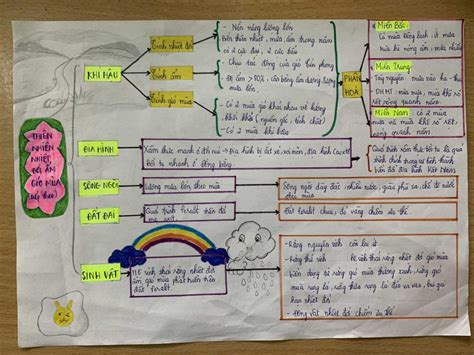 THIÊN
NHIÊN
NHIỆT
ĐỚI ẨM
GIÓ MÙA
(tiếp theo)
KHÍ HẬU
Tính nhiệt đới
- Nền nặng lượng lớn
Bốn thiên nhiệt, mưa, ẩm trong năm
có 2 cực đại, 2 cực tiểu
Tính ẩm
- Chịu tác động của gió tín phong
- Độ ẩm > 80%, cân bằng ẩm dương lượng
mưa lớn.
Tính gió mùa
- Có 2 mùa gió khác nhau về hướng
khối khí (nguồn gốc, tính chất)
- Có 2 mùa khí hậu
PHÂN
HOÁ
Miền Bắc:
Có mùa Đông lạnh, ít mưa
mùa hè nóng ẩm, mưa nhiều
Miền Trung:
Tây nguyên mưa vào hạ - thu
DHMT mùa mưa, mùa khô rõ
rệt nóng quanh năm.
Miền Nam: có 2 mùa
mưa và mùa khô rõ rệt,
nóng quanh năm
ĐỊA HÌNH
Xâm thực mạnh ở đồi núi → Địa hình bị cắt xẻ, xói mòn, địa hình Cacxtơ
Bồi tụ nhanh ở đồng bằng
Quá trình xâm thực bồi tụ là quá
trình chính trong sự hình thành
biến đổi địa hình Việt Nam
SÔNG NGÒI
Lượng mưa lớn, theo mùa
Sông ngòi dày đặc nhiều nước, giàu phù sa, chế độ nước
theo mùa
ĐẤT ĐAI
Quá trình feralit trên đá
mẹ axit
Đất feralit chua, đỏ vàng chiếm ưu thế.
SINH VẬT
HST sinh thái rừng nhiệt đới
ẩm gió mùa phát triển trên
đất feralit.
- Rừng nguyên sinh còn lại ít
- Rừng thứ sinh hệ sinh thái rừng nhiệt đới gió mùa
biến dạng từ rừng gió mùa thường xanh, rừng gió
mùa rụng lá, rừng thưa rụng lá tới xa van, bụi gai
hạn nhiệt đới.
- Động vật nhiệt đới chiếm ưu thế